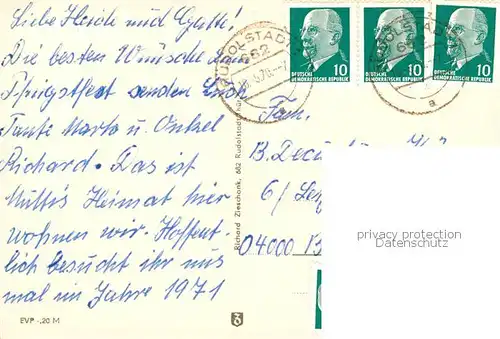 Liebe Heide und Gatte!
Die besten Wünsche zum
Pfingstfest senden Euch
Tante Marta u. Onkel
Richard. Das ist
Mutti's Heimat hier
wohnen wir. Hoffent
lich besucht ihr uns
mal im Jahre 1971
EVP -,20 M
Richard Zieschank, 682 Rudolstadt
RUDOLSTADT
682
a
DEUTSCHE
DEMOKRATISCHE REPUBLIK
10
DEUTSCHE
DEMOKRATISCHE REPUBLIK
10
DEUTSCHE
DEMOKRATISCHE REPUBLIK
10
RUDOLSTADT
a
Fam.
B.
6/
privacy protection
Datenschutz